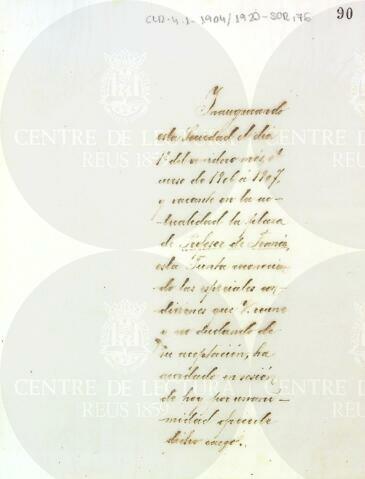 CLR-4.1-1904/1920-SOR,76
90
Inaugurando
esta Sociedad el dia
1º del venidero mes el
curso de 1906 á 1907,
y vacante en la ac-
tualidad la plaza
de Profesor de Francés,
esta Junta conocien-
do las especiales con-
diciones que V. reune
y no dudando de
su aceptación, ha
acordado en sesión
de hoy por unani-
midad ofrecerle
dicho cargo.
CENTRE DE LECTURA
REUS 1859
CENTRE DE LECTURA
REUS 1859